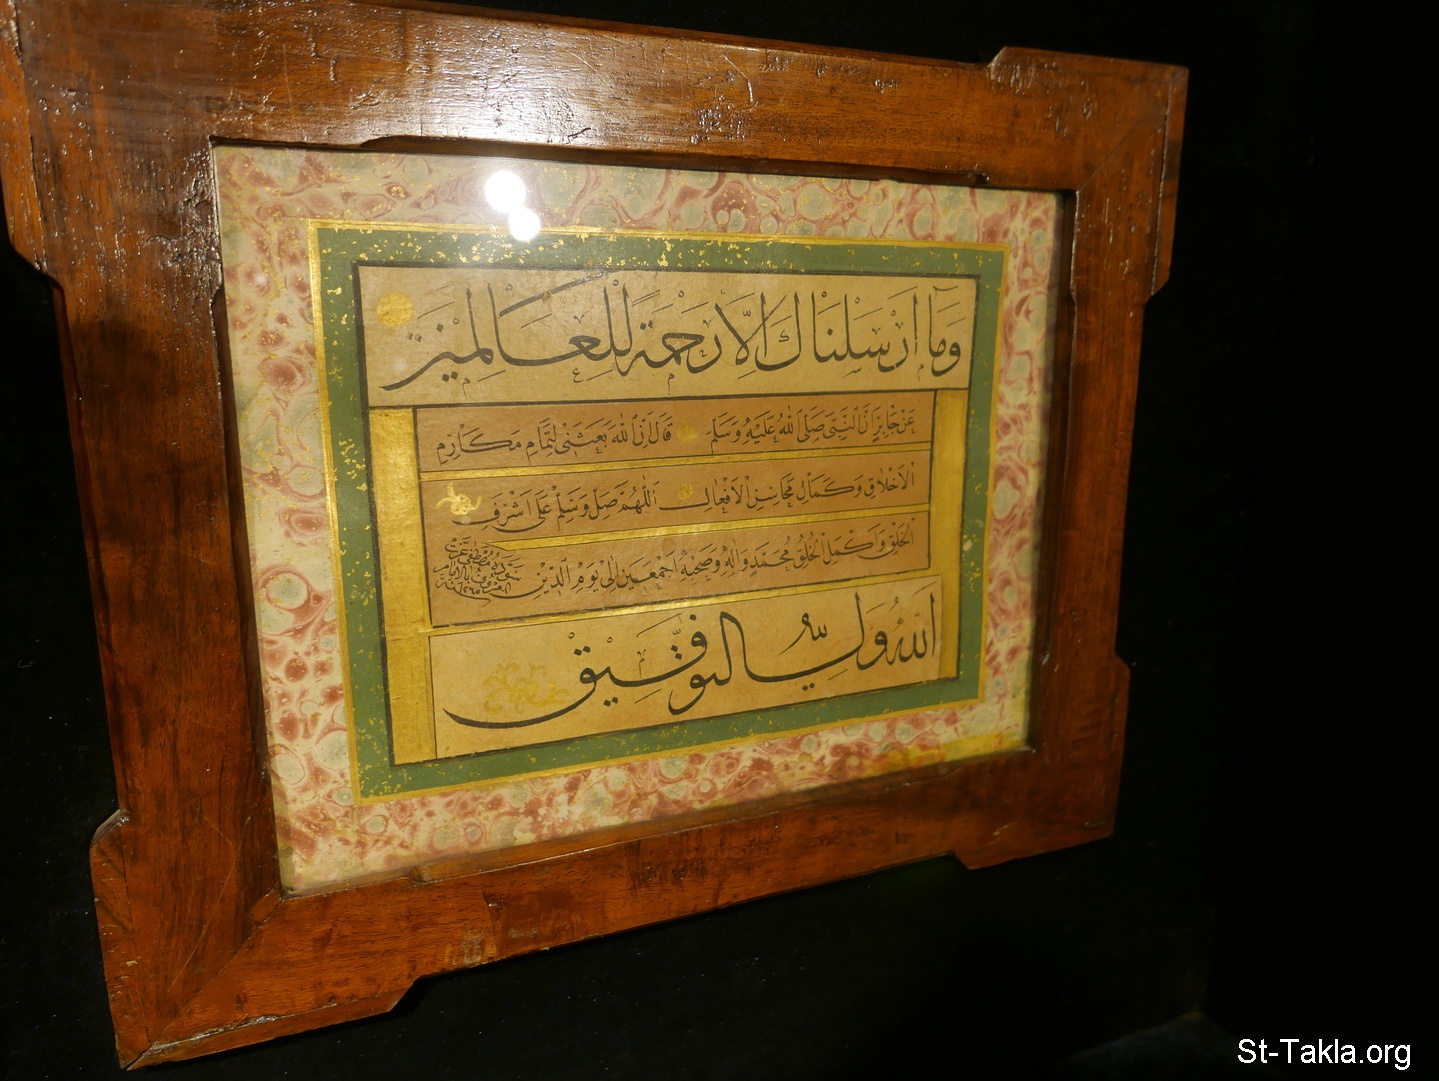 وَمَا أَرْسَلْنَاكَ إِلَّا رَحْمَةً لِلْعَالَمِينَ
عَنْ جَابِرٍ أَنَّ النَّبِيَّ صَلَّى اللهُ عَلَيْهِ وَسَلَّمَ قَالَ إِنَّ اللهَ بَعَثَنِي لِتَمَامِ مَكَارِمِ
الْأَخْلَاقِ وَكَمَالِ مَحَاسِنِ الْأَفْعَالِ اَللّٰهُمَّ صَلِّ وَسَلِّمْ عَلَى أَشْرَفِ
الْخَلْقِ وَأَكْمَلِ الْخُلُقِ مُحَمَّدٍ وَآلِهِ وَصَحْبِهِ أَجْمَعِينَ إِلَى يَوْمِ الدِّينِ
مصطفى عزت
المعروف بالإمام
اَللهُ وَلِيُّ التَّوْفِيقِ
St-Takla.org